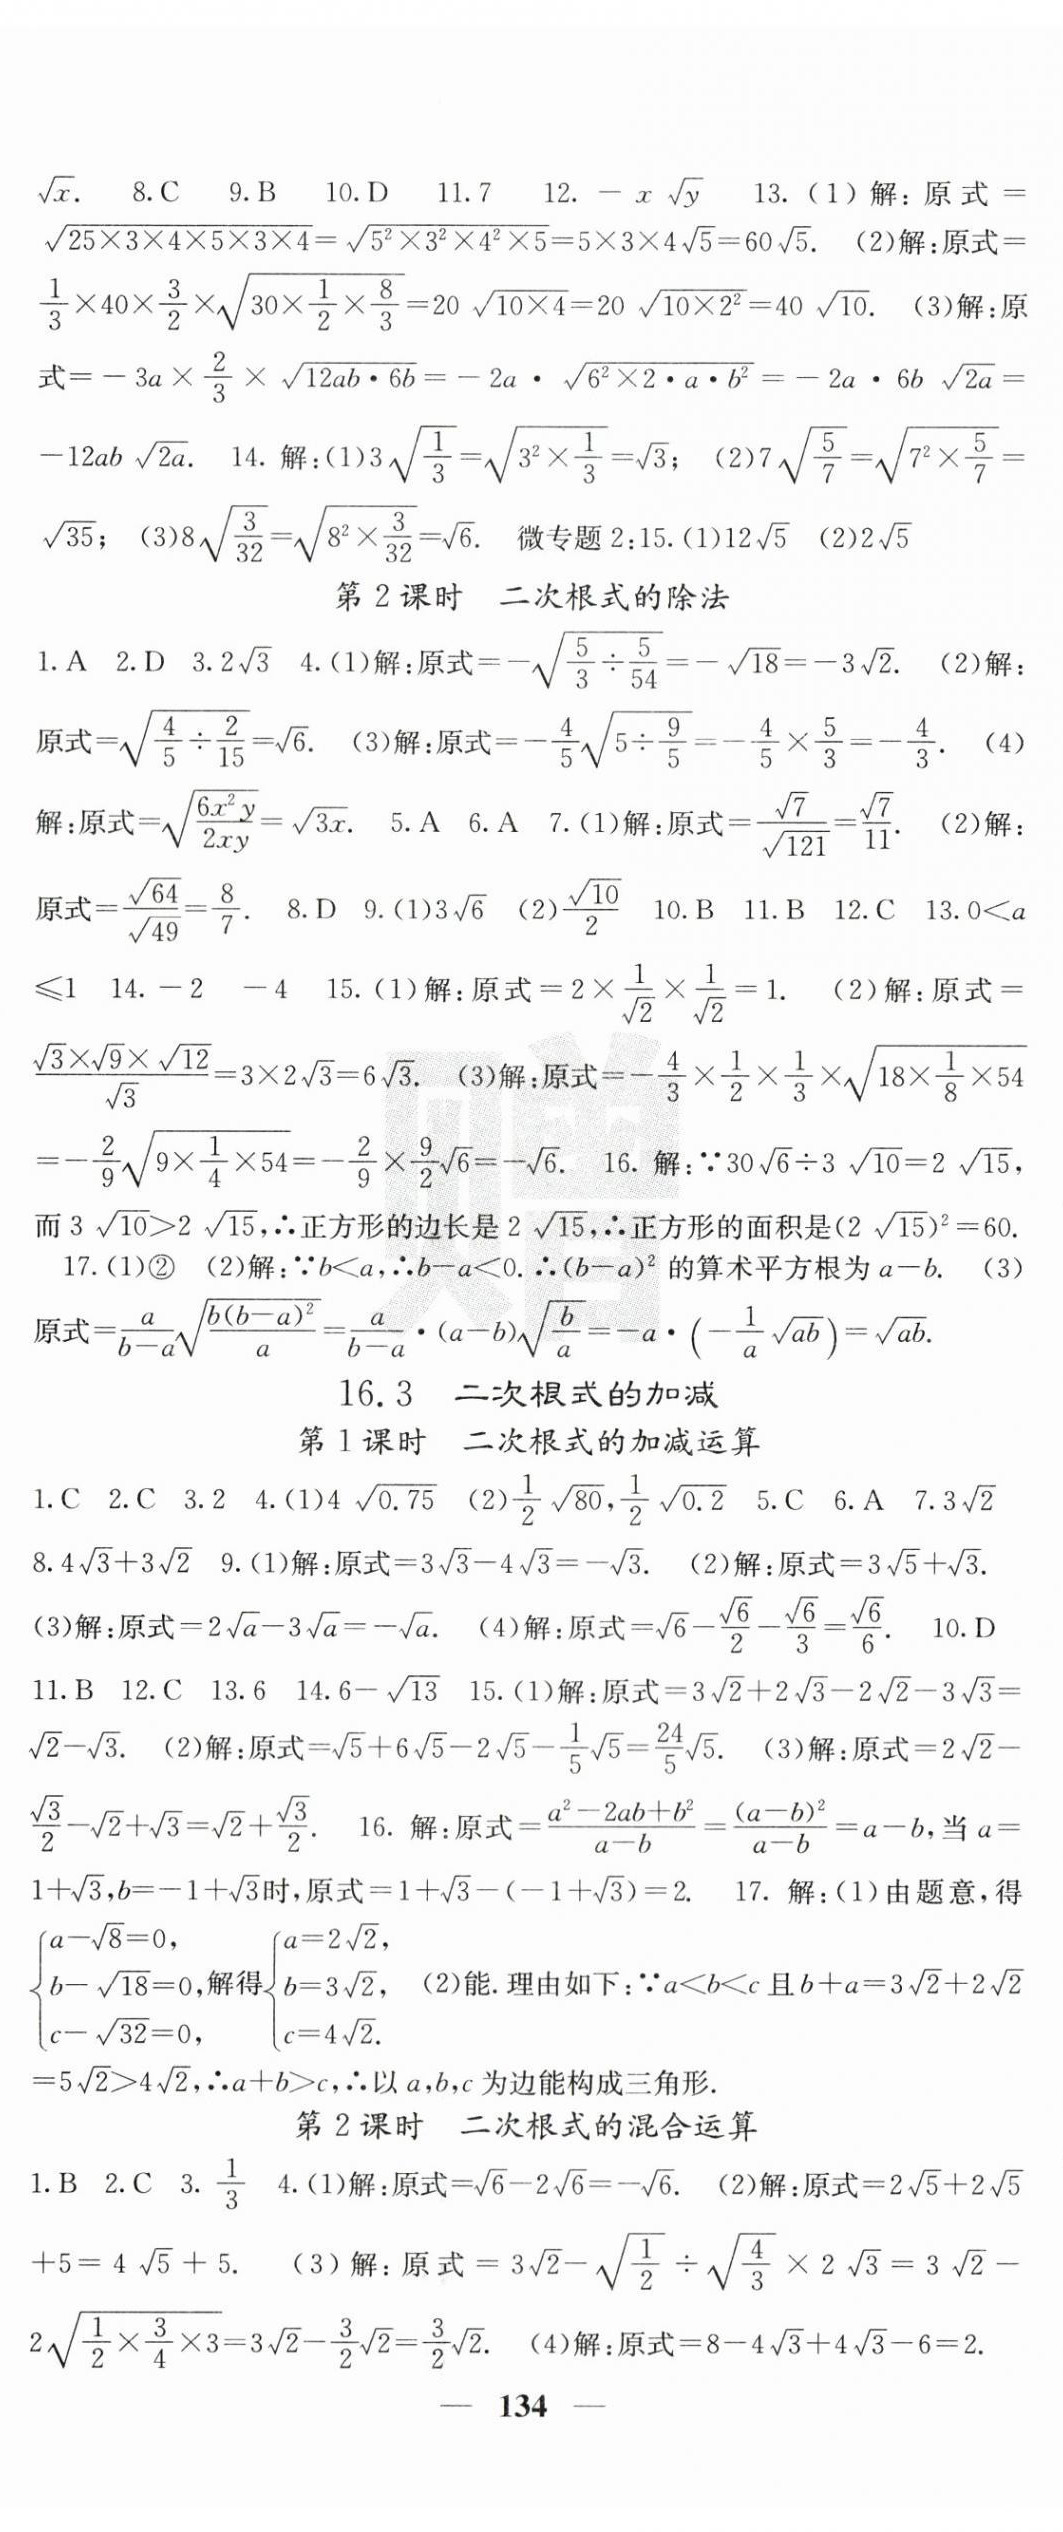 √x. 8.C 9.B 10.D 11.7 12. －x√y 13.(1)解:原式=
√(25×3×4×5×3×4)=√(5²×3²×4²×5)=5×3×4√5=60√5. (2)解:原式=
1/3×40×3/2×√(30×1/2×8/3)=20√(10×4)=20√(10×2²)=40√10. (3)解:原
式=－3a×2/3×√(12ab·6b)=－2a·√(6²×2·a·b²)=－2a·6b√(2a)=
－12ab√(2a). 14. 解:(1)3√(1/3)=√(3²×1/3)=√3; (2)7√(5/7)=√(7²×5/7)=
√35; (3)8√(3/32)=√(8²×3/32)=√6. 微专题2:15.(1)12√5 (2)2√5
第2课时 二次根式的除法
1.A 2.D 3.2√3 4.(1)解:原式=－√(5/3÷5/54)=－√18=－3√2. (2)解:
原式=√(4/5÷2/15)=√6. (3)解:原式=－4/5√(5÷9/5)=－4/5×5/3=－4/3. (4)
解:原式=√(6x²y/2xy)=√(3x). 5.A 6.A 7.(1)解:原式=√7/√121=√7/11. (2)解:
原式=√64/√49=8/7. 8.D 9.(1)3√6 (2)√10/2 10.B 11.B 12.C 13.0<a
≤1 14.－2 －4 15.(1)解:原式=2×1/√2×1/√2=1. (2)解:原式=
(√3×√9×√12)/√3=3×2√3=6√3. (3)解:原式=－4/3×1/2×1/3×√(18×1/8×54)
=－2/9√(9×1/4×54)=－2/9×9/2√6=－√6. 16. 解:∵30√6÷3√10=2√15,
而3√10>2√15,∴正方形的边长是2√15,∴正方形的面积是(2√15)²=60.
17.(1)② (2)解:∵b<a,∴b－a<0.∴(b－a)²的算术平方根为a－b. (3)
原式=a/(b－a)√(b(b－a)²/a)=a/(b－a)·(a－b)√(b/a)=－a·(－1/a√(ab))=√(ab).
16.3 二次根式的加减
第1课时 二次根式的加减运算
1.C 2.C 3.2 4.(1)4√0.75 (2)1/2√80,1/2√0.2 5.C 6.A 7.3√2
8.4√3+3√2 9.(1)解:原式=3√3－4√3=－√3. (2)解:原式=3√5+√3.
(3)解:原式=2√a－3√a=－√a. (4)解:原式=√6－√6/2－√6/3=√6/6. 10.D
11.B 12.C 13.6 14.6－√13 15.(1)解:原式=3√2+2√3－2√2－3√3=
√2－√3. (2)解:原式=√5+6√5－2√5－1/5√5=24/5√5. (3)解:原式=2√2－
√3/2－√2+√3=√2+√3/2. 16. 解:原式=(a²－2ab+b²)/(a－b)=(a－b)²/(a－b)=a－b,当a=
1+√3,b=－1+√3时,原式=1+√3－(－1+√3)=2. 17. 解:(1)由题意,得
{a－√8=0, {a=2√2,
b－√18=0,解得 b=3√2, (2)能.理由如下:∵a<b<c且b+a=3√2+2√2
c－√32=0, c=4√2.
=5√2>4√2,∴a+b>c,∴以a,b,c为边能构成三角形.
第2课时 二次根式的混合运算
1.B 2.C 3. 1/3 4.(1)解:原式=√6－2√6=－√6. (2)解:原式=2√5+2√5
+5=4√5+5. (3)解:原式=3√2－√(1/2)÷√(4/3)×2√3=3√2－
2√(1/2×3/4×3)=3√2－3/2√2=3/2√2. (4)解:原式=8－4√3+4√3－6=2.
— 134 —